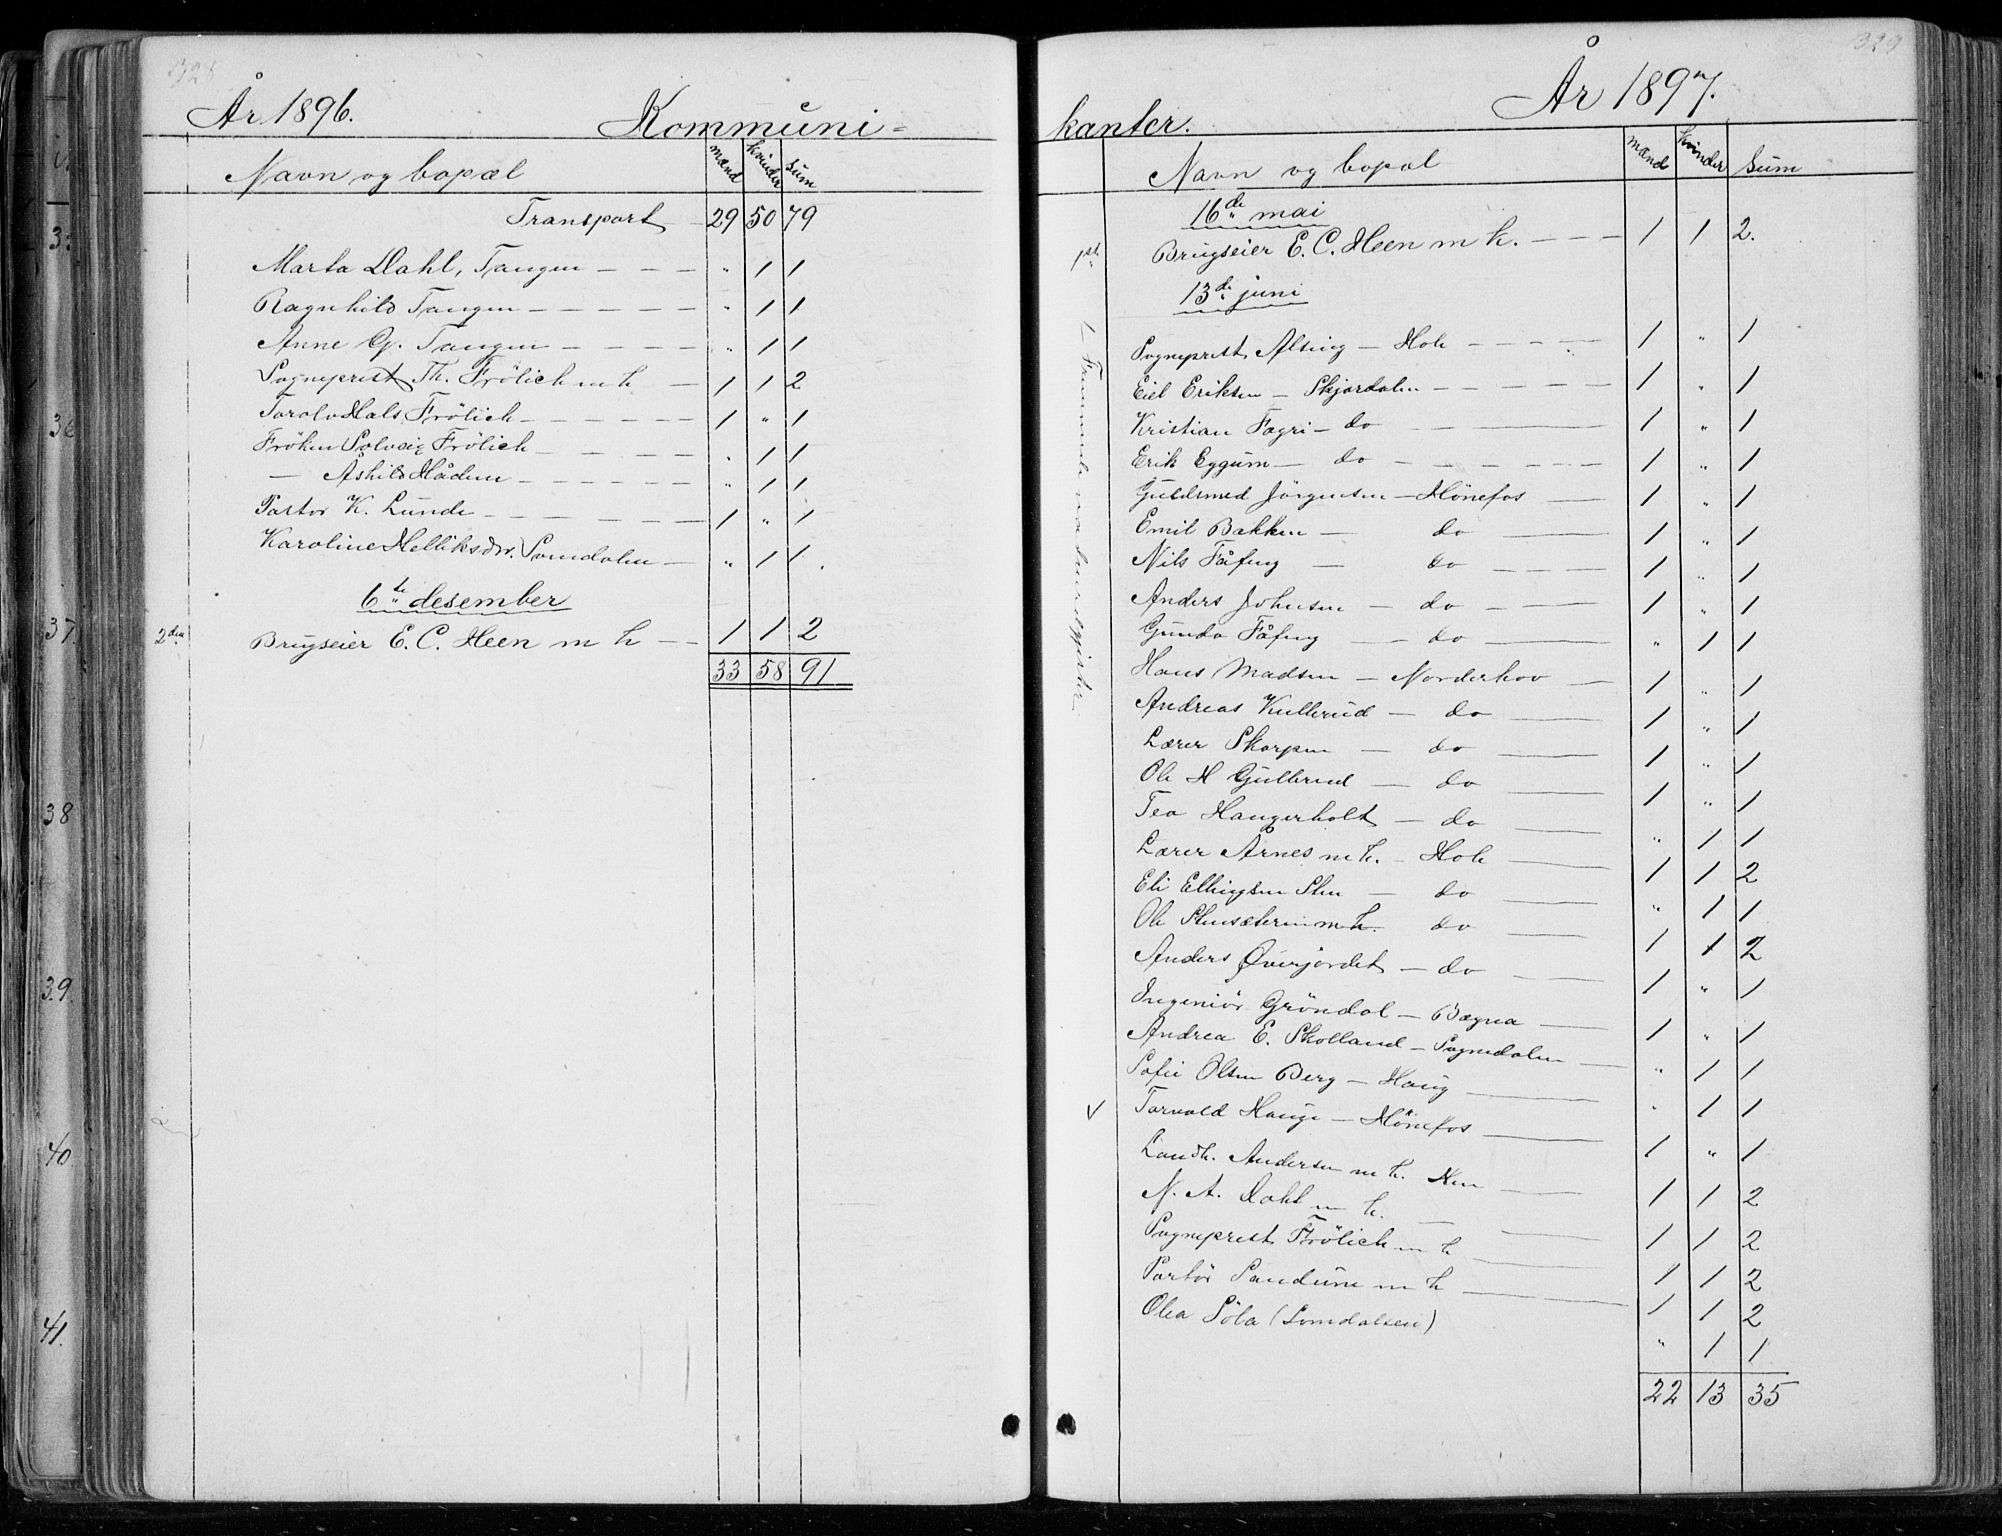 328
År 1896. Kommuni-
Navn og bopæl mænd kvinder sum
Transport 29 50 79
Marta Dahl, Tangen — — — " 1 1
Ragnhild Tangen — — — — — " 1 1
Anne G. Tangen — — — — " 1 1
Sogneprest Th. Frölich m h — 1 1 2
Torolv Hals Frölich — — — — — 1 " 1
Fröken Solveig Frölich — — — — " 1 1
— Åshild Hådem — — — — — " 1 1
Pastor K. Lunde — — — — — 1 " 1
Karoline Helliksdr. Somdalen — " 1 1
6te desember
2den Brugseier E. C. Heen m h — 1 1 2
33 58 91
33
36
37.
38
39.
40
41.
329
År 1897.
kanter.
Navn og bopæl mænd kvinder sum
16de mai
1ste Brugseier E. C. Heen m h. — — — 1 1 2.
13de juni
Sogneprest Alsing — Hole — — — — 1 " 1
Eiel Eriksen — Skjordalen — — — — — 1 " 1
Kristian Fagri — do — — — 1 " 1
Erik Eggum — do — — — — — — 1 " 1
Guldsmed Jörgensen — Hönefos — 1 " 1
Emil Bakken — do — 1 " 1
Nils Fåfeng — do — — — 1 " 1
Anders Johnsen — do — — — 1 " 1
Gunda Fåfeng — do — " 1 1
Hans Madsen — Norderhov — 1 " 1
Andreas Kullerud — do — 1 " 1
Lærer Skarpen — do — 1 " 1
Ole H Gullerud — do — 1 " 1
Tea Haugerholt — do — " 1 1
Lærer Årnes m h. — Hole — 1 1 2
Eli Ellingsen Sten — do — " 1 1
Ole Stensæteren m h. do — 1 1 2
Anders Øverjordet — do — 1 " 1
Ingeniör Gröndal — Bægna — 1 " 1
Andrea E. Skolland — Sognedalen — " 1 1
Sofie Olsen Berg — Haug — " 1 1
V Torvald Hauge — Hönefos — 1 " 1
Landh. Andersen m h. Hen — 1 1 2
N. A. Dahl m h. — — 1 1 2
Sogneprest Frölich m h — 1 1 2
Pastor Sandune m h — 1 1 2
Olea Söla (Somdalsen) " 1 1
22 13 35